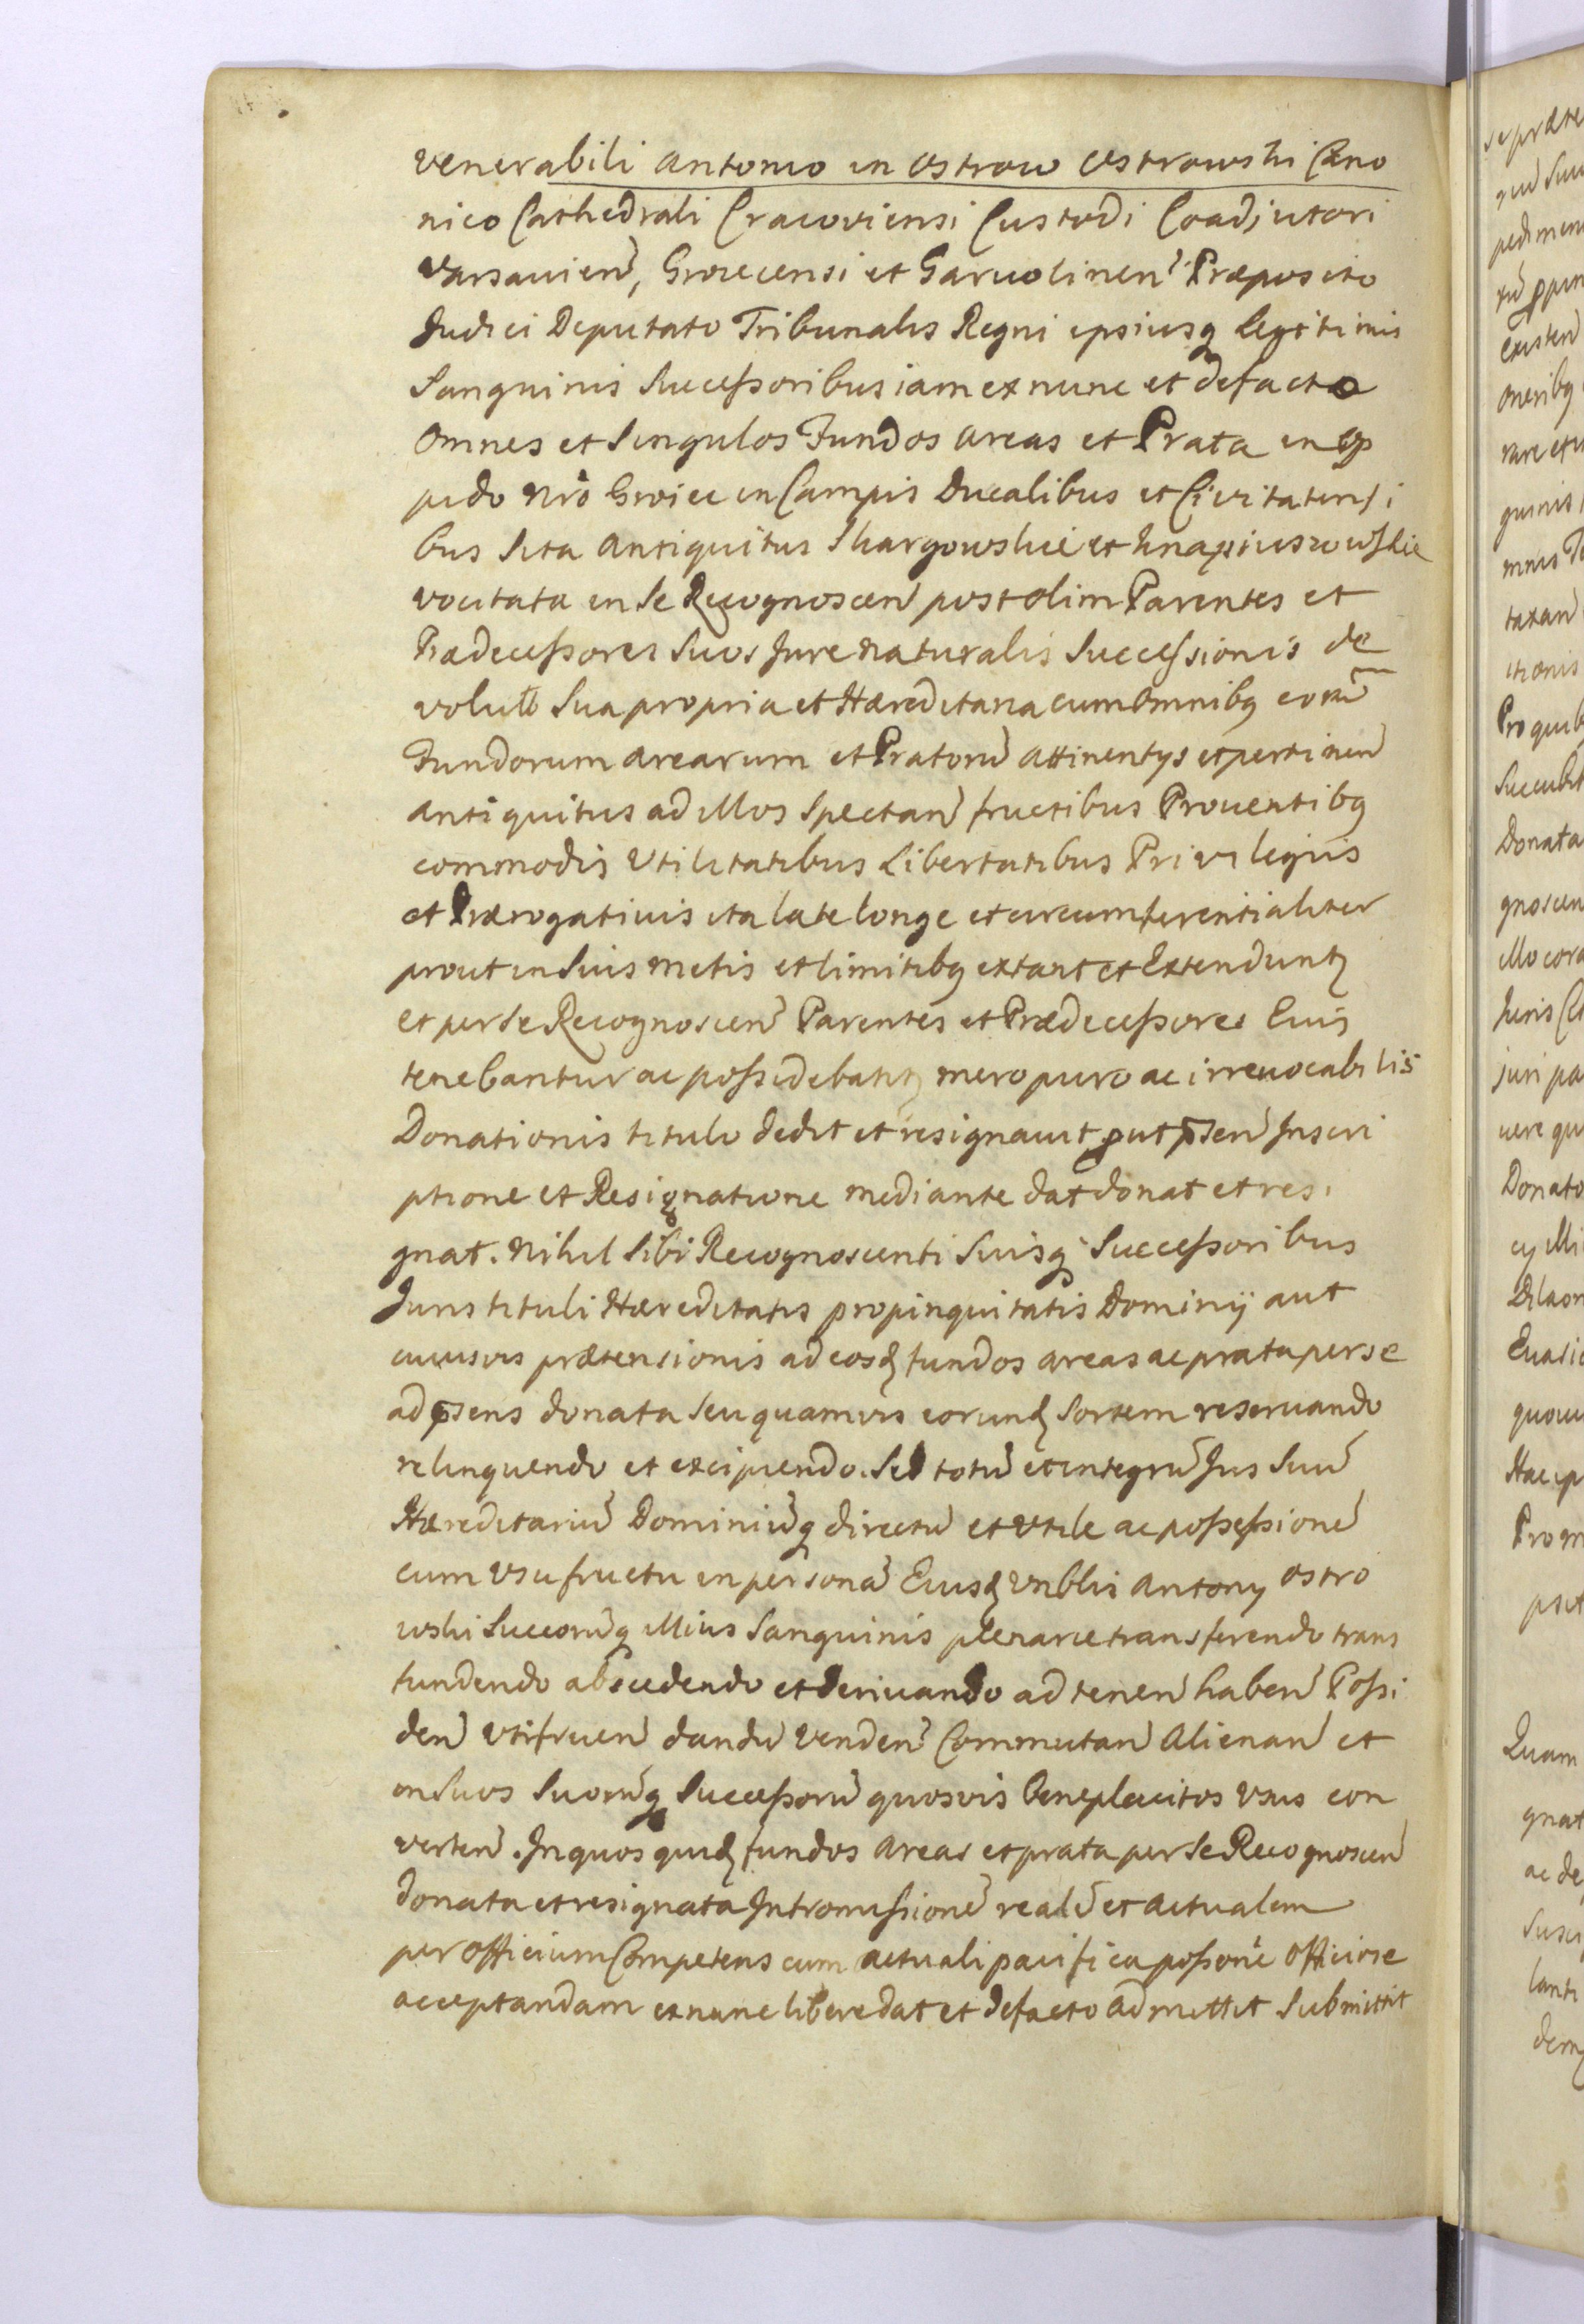 Venerabili Antonio in Ostrow Ostrowski Cano
nico Cathedrali Cracoviensi Custodi Coadjutori
Varsavieñ, Groiecensi et Garvolineñ Præposito
Judici Deputato Tribunalis Regni ipsiusq legitimis
Sanguinis Sucessoribus iam ex nunc et de facto
omnes et Singulos Fundos areas et Prata in Op
pido Nrõ Groiec in Campis Ducalibus et Civitatensi
bus Sita Antiquitus Skargowskie et Knapiuszowskie
vocitata in Se Recognosceñ post olim Parentes et
Prædecessores Suos Jure naturalis Successionis de
voluta Sua propria et Hæreditaria cum Omnibq eorũ
Fundorum arearum et Pratorũ attinentys et pertineñ
antiquitus ad illos Spectañ fructibus Proventibq
commodis Utilitatibus Libertatibus Privilegiis
et Prærogativis ita late longe et circumferentialiter
prout in Suis metis et limitibq extant et Extenduntz
et per Se Recognosceñ Parentes et Prædecessores Eius
tenebantur ac possidebantz mero puro ac irrevocabilis
Donationis titulo dedit et resignavit put pseñ Inscri
ptione et Resignatione mediante dat donat et resi
gnat. Nihil Sibi Recognoscenti Suisq Successoribus
Juris tituli Hæreditatis propinquitatis Dominij aut
cuiusvis prætensionis ad eosd fundos areas ac prata per se
ad psens donata seu quamvis eorund Sortem reservando
relinquendo et excipiendo. Sed totũ et integrũ Jus Suũ
Hæreditariũ Dominiũq directũ et Utile ac possessionẽ
cum Usufructu in personã Eiusd Vnblis Antony Ostro
wski Succorũq illius Sanguinis plenarie transferendo trans
fundendo abscedendo et derivando ad teneñ habeñ Possi
deñ Utifrueñ dandũ Vendeñ Commutañ Alienañ et
in Suos Suorũq Successorũ quosvis Beneplacitos Usus con
verteñ. In quos quid fundos Areas et prata per Se Recognosceñ
donata et resignata Intromissionẽ realẽ et Actualem
per Officium Competens cum actuali pacifica possonẽ Officiose
acceptandam ex nunc libere dat et de facto admittit Submittit